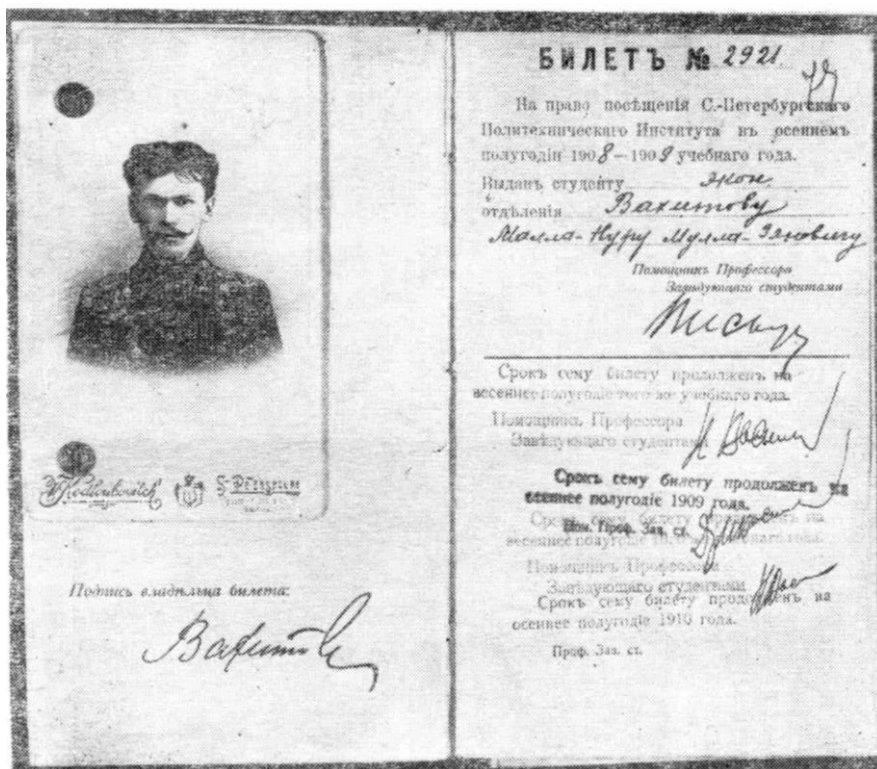 Подпись владѣльца билета:
Вахитов
БИЛЕТЪ № 2921
На право посѣщенія С.-Петербургскаго
Политехническаго Института въ осеннемъ
полугодіи 1908—1909 учебнаго года.
Выданъ студенту экон.
отдѣленія Вахитову
Мулла-Нуру Мулла-
Помощникъ Профессора
Завѣдующаго студентами
Срокъ сему билету продолженъ на
весеннее полугодіе того же учебнаго года.
Помощникъ Профессора
Завѣдующаго студентами
Срокъ сему билету продолженъ на
осеннее полугодіе 1909 года.
Пом. Проф. Зав. ст.
Срокъ сему билету продолженъ на
весеннее полугодіе учебнаго года.
Помощникъ Профессора
Завѣдующаго студентами
Срокъ сему билету продолженъ на
осеннее полугодіе 1910 года.
Проф. Зав. ст.